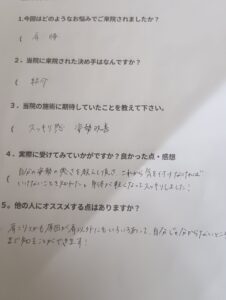 1.今回はどのようなお悩みでご来院されましたか?
( 肩
2．当院に来院された決め手はなんですか？
( 紹介
3．当院の施術に期待していたことを教えて下さい。
( スッキリ感 姿勢改善
4．実際に受けてみていかがですか？良かった点・感想
( 自分の姿勢の悪さを教えて頂き、これから気を付けなければ
いけないことを知れた。身体が軽くなってスッキリしました！
5。他の人にオススメする点はありますか？
肩こりでも原因が肩以外にもいろいろあって、自分じゃ分からないところ
まで知ることができます！